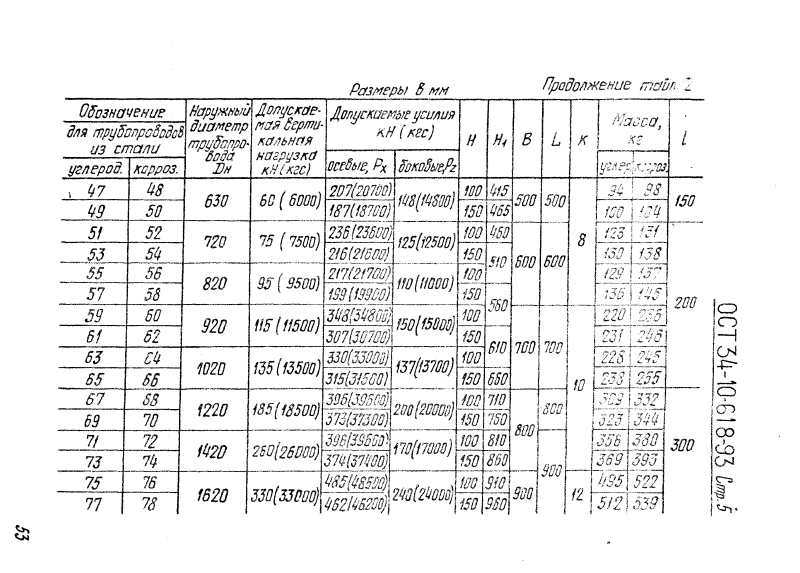 Размеры в мм
Продолжение табл. 2
Обозначение для трубопроводов из стали | Наружный диаметр трубопровода Dн | Допускаемая вертикальная нагрузка кН (кгс) | Допускаемые усилия кН (кгс) | H | H₁ | B | L | K | Масса, кг | l
углерод. | корроз. | осевые, Px | боковые, Pz | углер. | корроз.
47 | 48 | 630 | 60 (6000) | 207(20700) | 148(14800) | 100 | 415 | 500 | 500 | 8 | 94 | 98 | 150
49 | 50 | 187(18700) | 150 | 465 | 100 | 104
51 | 52 | 720 | 75 (7500) | 236(23600) | 125(12500) | 100 | 460 | 600 | 600 | 123 | 131 | 200
53 | 54 | 216(21600) | 150 | 510 | 130 | 138
55 | 56 | 820 | 95 (9500) | 217(21700) | 110(11000) | 100 | 129 | 137
57 | 58 | 199(19900) | 150 | 560 | 136 | 145
59 | 60 | 920 | 115 (11500) | 348(34800) | 150(15000) | 100 | 700 | 700 | 10 | 220 | 236
61 | 62 | 307(30700) | 150 | 610 | 231 | 246
63 | 64 | 1020 | 135 (13500) | 330(33000) | 137(13700) | 100 | 228 | 245
65 | 66 | 315(31500) | 150 | 660 | 238 | 255
67 | 68 | 1220 | 185 (18500) | 396(39600) | 200(20000) | 100 | 710 | 800 | 800 | 309 | 332 | 300
69 | 70 | 373(37300) | 150 | 760 | 323 | 344
71 | 72 | 1420 | 260 (26000) | 396(39600) | 170(17000) | 100 | 810 | 900 | 356 | 380
73 | 74 | 374(37400) | 150 | 860 | 369 | 393
75 | 76 | 1620 | 330 (33000) | 485(48500) | 240(24000) | 100 | 910 | 900 | 12 | 495 | 522
77 | 78 | 462(46200) | 150 | 960 | 512 | 539
ОСТ 34-10-618-93 Стр. 5
53